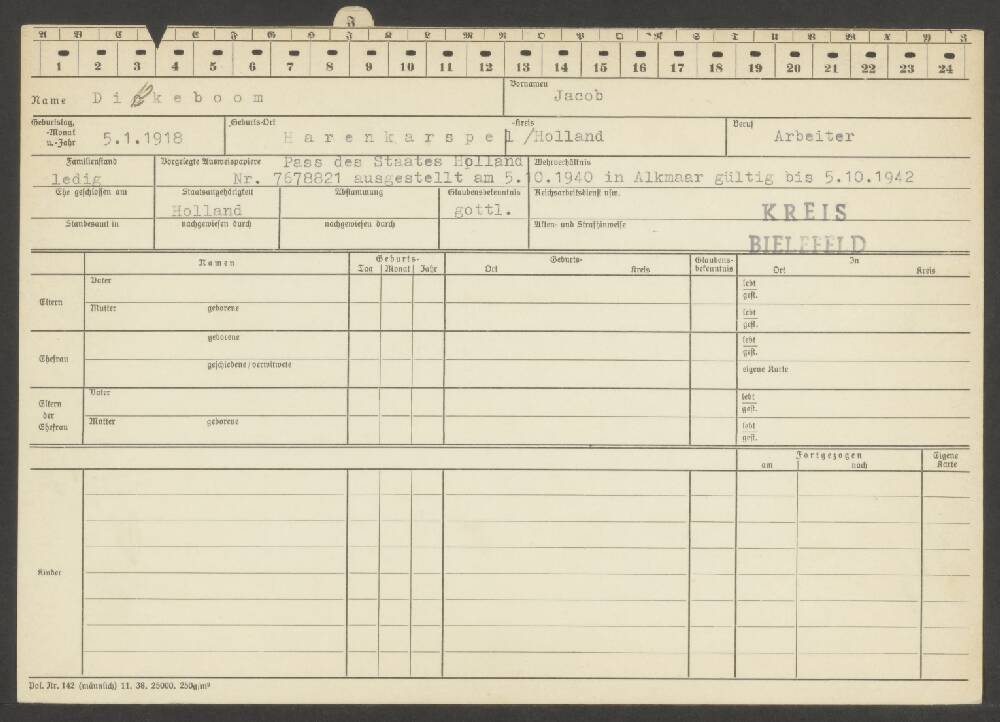 J
A B C E F G H J K L M N O P Q R S T U V W X Y Z
1 2 3 4 5 6 7 8 9 10 11 12 13 14 15 16 17 18 19 20 21 22 23 24
Name Dirkeboom Vornamen Jacob
Geburtstag, -Monat u.-Jahr 5.1.1918 Geburts-Ort -Kreis Harenkarspel/Holland Beruf Arbeiter
Familienstand ledig Vorgelegte Ausweispapiere Pass des Staates Holland Wehrverhältnis
Nr. 7678821 ausgestellt am 5.10.1940 in Alkmaar gültig bis 5.10.1942
Ehe geschlossen am Staatsangehörigkeit Abstammung Glaubensbekenntnis Reichsarbeitsdienst usw.
Holland gottl. KREIS
Standesamt in nachgewiesen durch nachgewiesen durch Akten- und Strafhinweise
BIELEFELD
Namen Geburts- Geburts- Glaubens- In
Tag Monat Jahr Ort Kreis bekenntnis Ort Kreis
Eltern Vater lebt
gest.
Mutter geborene lebt
gest.
Ehefrau geborene lebt
gest.
geschiedene/verwitwete eigene Karte
Eltern der Ehefrau Vater lebt
gest.
Mutter geborene lebt
gest.
Fortgezogen Eigene
am nach Karte
Kinder
Pol. Nr. 142 (männlich) 11. 38. 25000. 250g/m²